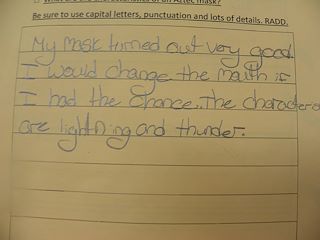 of an Aztec mask?
Be sure to use capital letters, punctuation and lots of details. RADD.
My mask turned out very good.
I would change the mouth if
I had the chance. The characteris
are lightning and thunder.